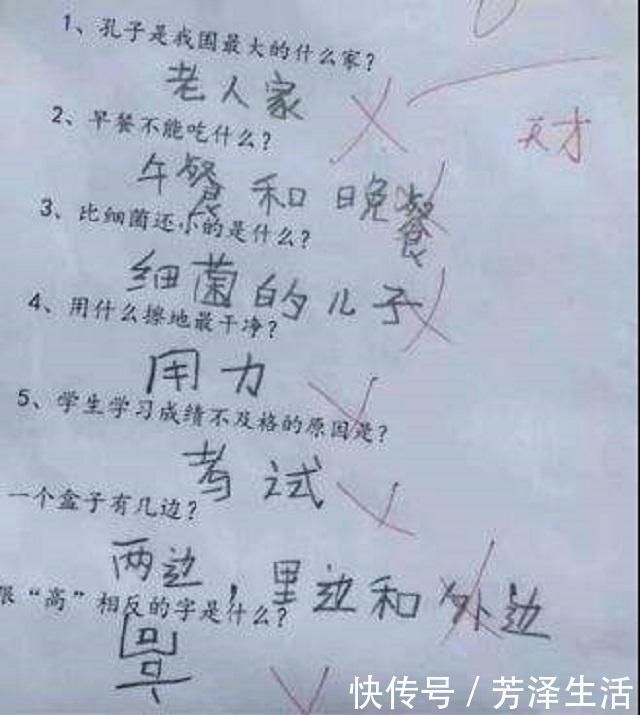 1、孔子是我国最大的什么家？
老人家
天才
2、早餐不能吃什么？
午餐和晚餐
3、比细菌还小的是什么？
细菌的儿子
4、用什么擦地最干净？
用力
5、学生学习成绩不及格的原因是？
考试
一个盒子有几边？
两边，里边和外边
跟“高”相反的字是什么？
快传号/芳泽生活